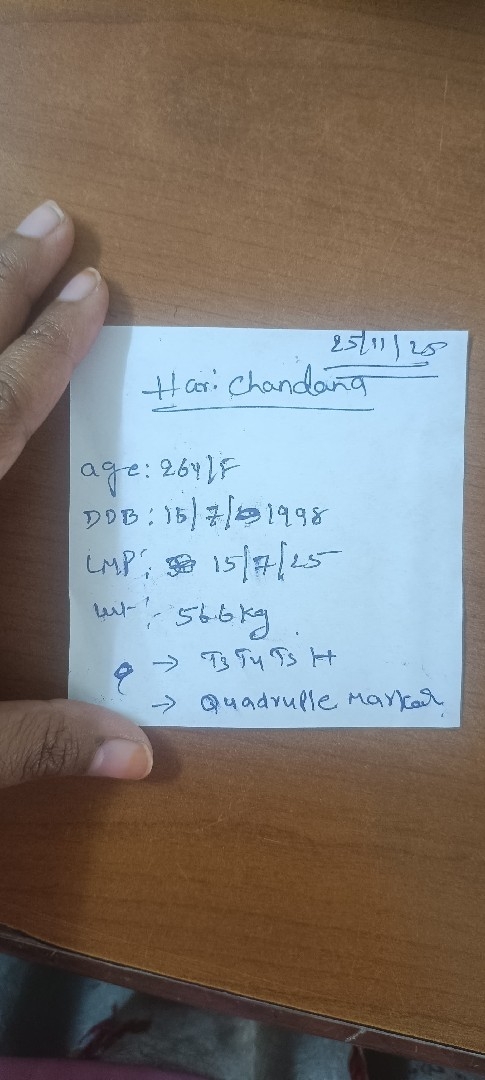 25/11/25
Hari Chandana
age: 26y/F
DOB: 15/7/1998
LMP: 15/7/25
wt:- 56.6kg
→ T3 T4 TSH
→ Quadruple Marker